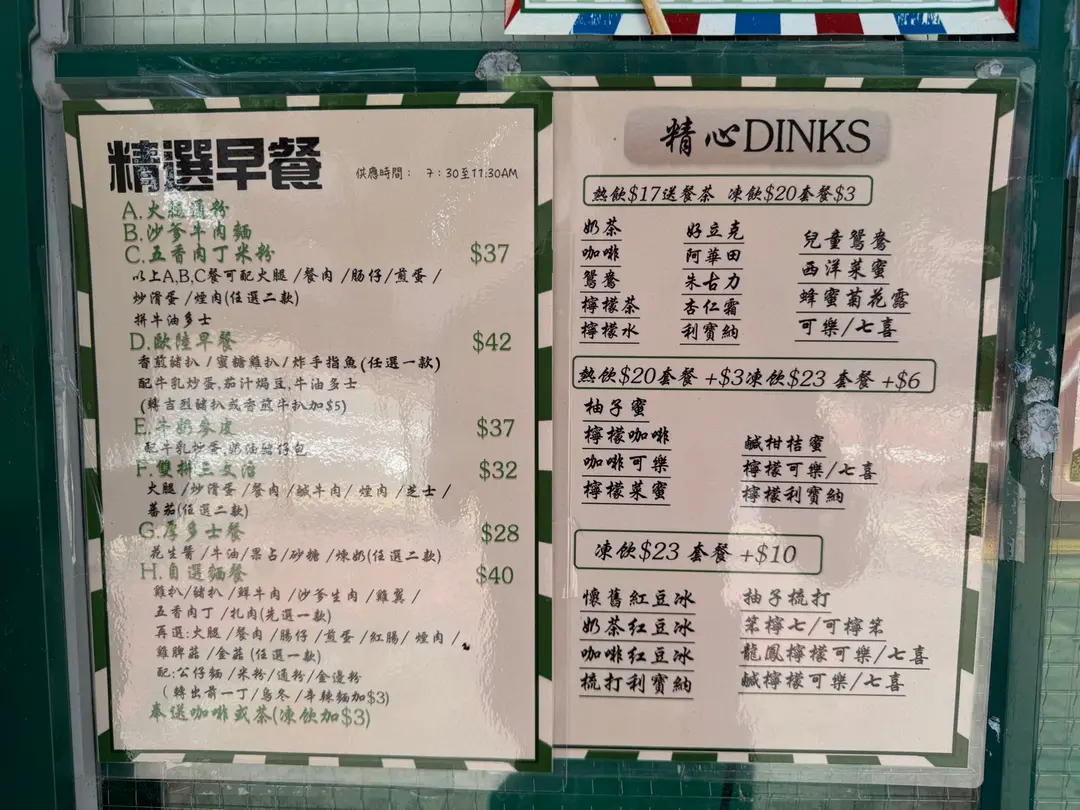 精選早餐
供應時間： 7：30至11:30AM
A.火腿通粉
B.沙爹牛肉麵
C.五香肉丁米粉 $37
以上A,B,C餐可配火腿/餐肉/腸仔/煎蛋/
炒滑蛋/煙肉(任選二款)
拼牛油多士
D.歐陸早餐 $42
香煎豬扒/蜜糖雞扒/炸手指魚(任選一款)
配牛乳炒蛋,茄汁焗豆,牛油多士
(轉吉烈豬扒或香煎牛扒加$5)
E.牛奶麥皮 $37
配牛乳炒蛋,奶油豬仔包
F.雙拼三文治 $32
火腿/炒滑蛋/餐肉/鹹牛肉/煙肉/芝士/
蕃茄(任選二款)
G.厚多士餐 $28
花生醬/牛油/果占/砂糖/煉奶(任選二款)
H.自選麵餐 $40
雞扒/豬扒/鮮牛肉/沙爹牛肉/雞翼/
五香肉丁/扎肉(先選一款)
再選:火腿/餐肉/腸仔/煎蛋/紅腸/煙肉/
雞脾菇/金菇(任選一款)
配:公仔麵/米粉/通粉/金邊粉
(轉出前一丁/烏冬/辛辣麵加$3)
奉送咖啡或茶(凍飲加$3)
精心DINKS
熱飲$17送餐茶 凍飲$20套餐$3
奶茶
咖啡
鴛鴦
檸檬茶
檸檬水
好立克
阿華田
朱古力
杏仁霜
利賓納
兒童鴛鴦
西洋菜蜜
蜂蜜菊花露
可樂/七喜
熱飲$20套餐+$3凍飲$23 套餐+$6
柚子蜜
檸檬咖啡
咖啡可樂
檸檬菜蜜
鹹柑桔蜜
檸檬可樂/七喜
檸檬利賓納
凍飲$23 套餐+$10
懷舊紅豆冰
奶茶紅豆冰
咖啡紅豆冰
梳打利賓納
柚子梳打
笨檸七/可檸笨
龍鳳檸檬可樂/七喜
鹹檸檬可樂/七喜